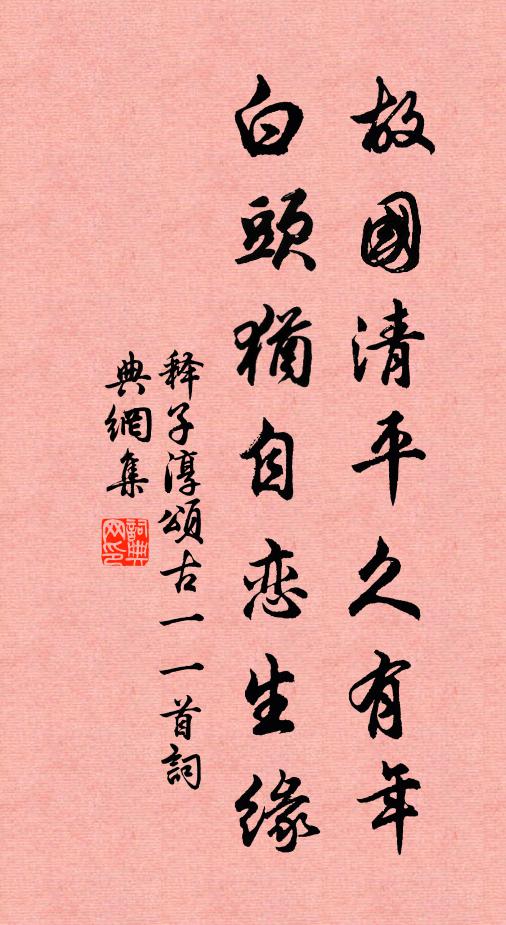 故國清平久有年
白頭猶自恋生缘
释子淳頌古一一首詞
典網集
詞典
网印